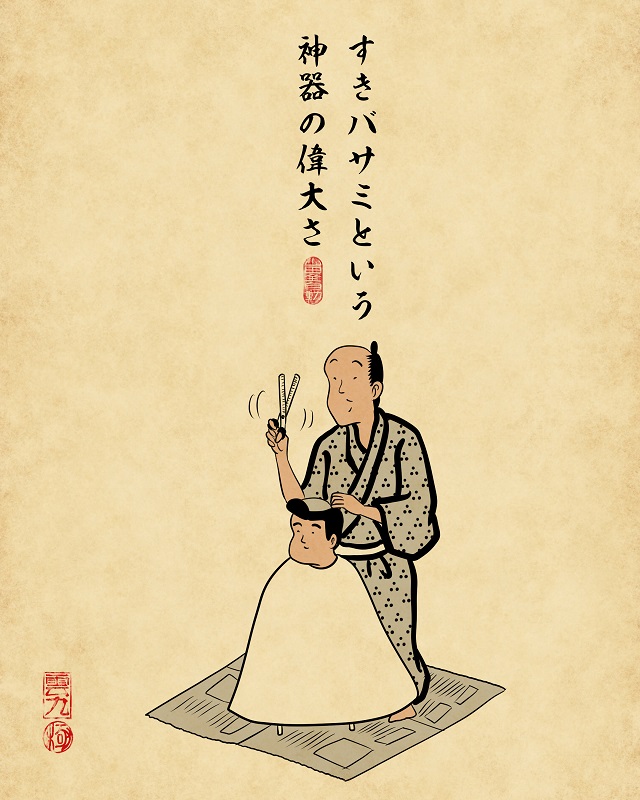 すきバサミという
神器の偉大さ